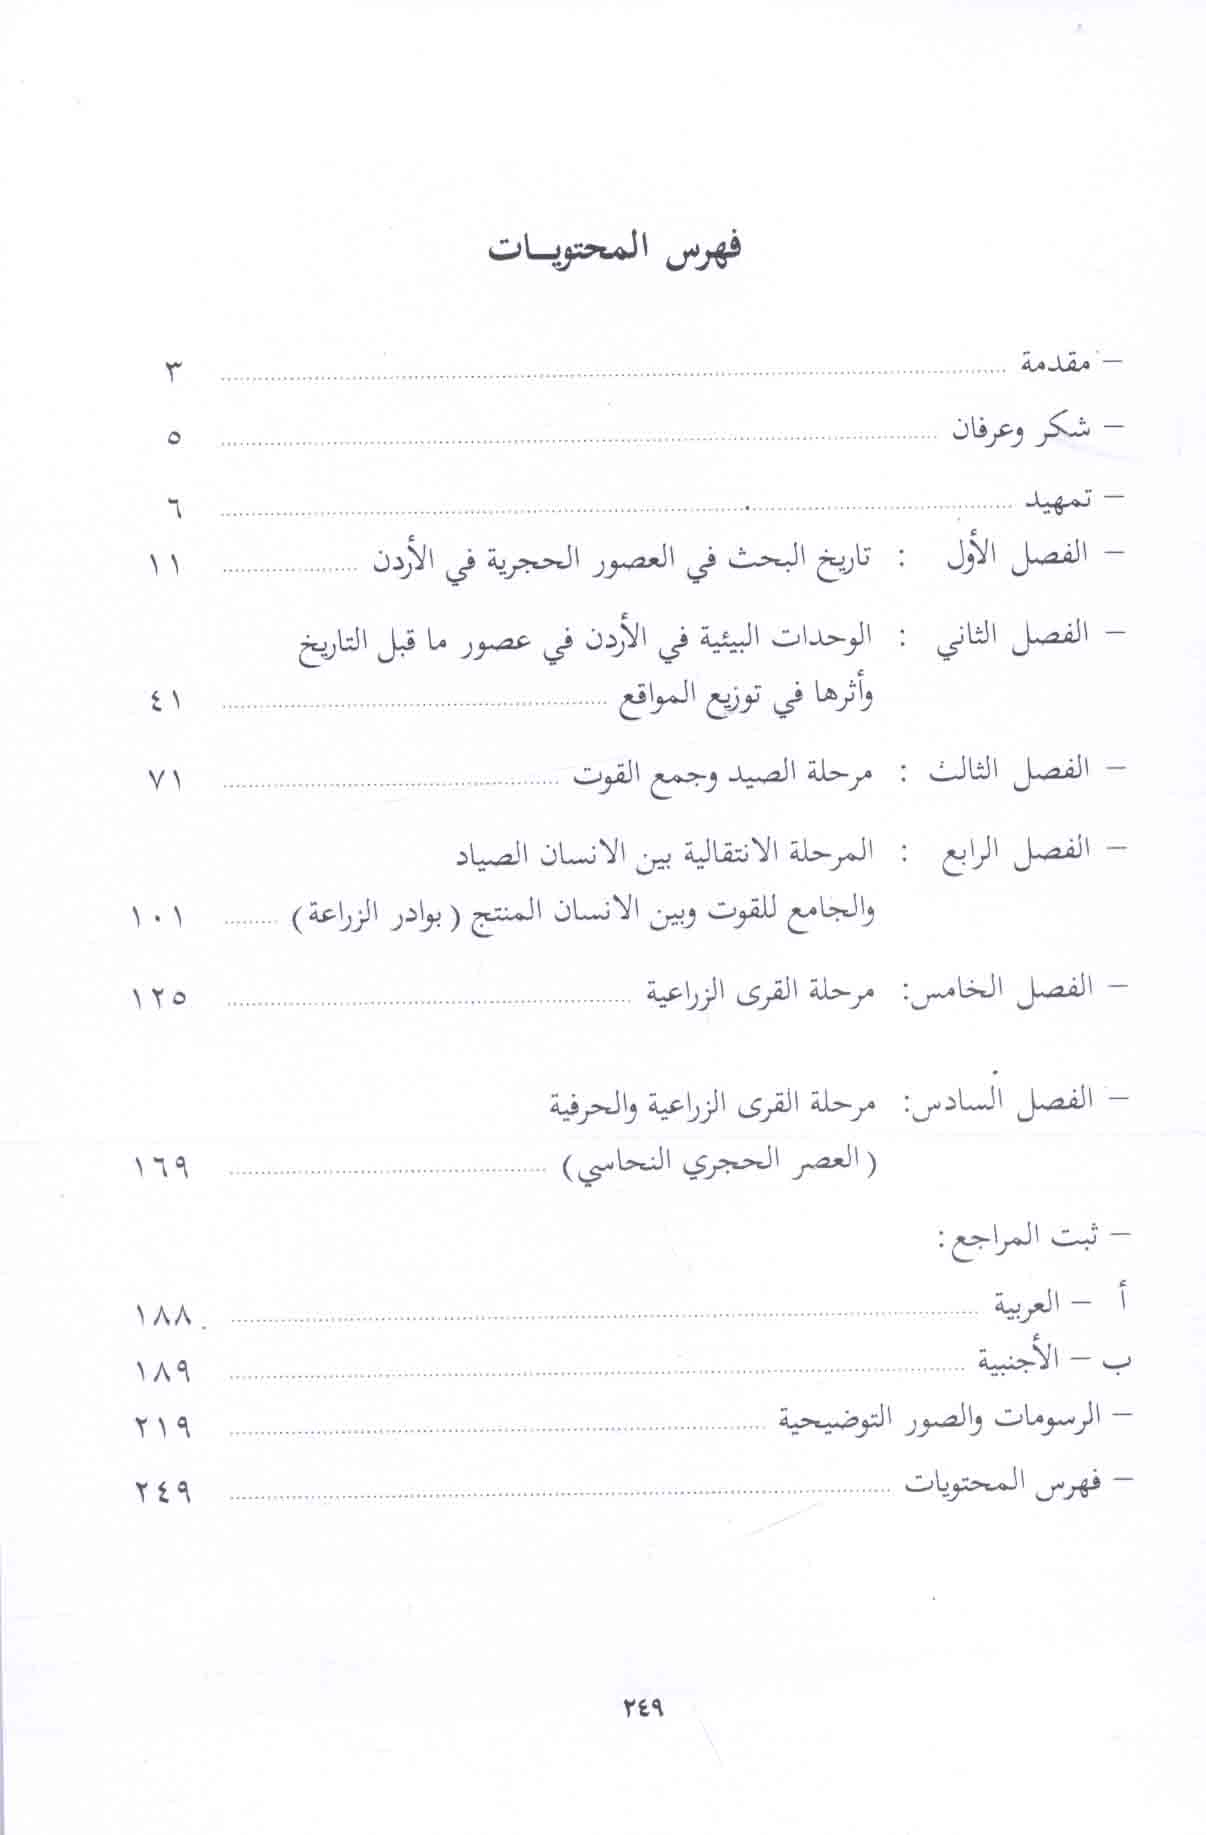 فهرس المحتويـات
– مقدمة ........ ٣
– شكر وعرفان ........ ٥
– تمهيد ........ ٦
– الفصل الأول : تاريخ البحث في العصور الحجرية في الأردن ........ ١١
– الفصل الثاني : الوحدات البيئية في الأردن في عصور ما قبل التاريخ
وأثرها في توزيع المواقع ........ ٤١
– الفصل الثالث : مرحلة الصيد وجمع القوت ........ ٧١
– الفصل الرابع : المرحلة الانتقالية بين الانسان الصياد
والجامع للقوت وبين الانسان المنتج (بوادر الزراعة) ........ ١٠١
– الفصل الخامس: مرحلة القرى الزراعية ........ ١٢٥
– الفصل السادس: مرحلة القرى الزراعية والحرفية
(العصر الحجري النحاسي) ........ ١٦٩
– ثبت المراجع:
أ – العربية ........ ١٨٨
ب – الأجنبية ........ ١٨٩
– الرسومات والصور التوضيحية ........ ٢١٩
– فهرس المحتويات ........ ٢٤٩
٢٤٩